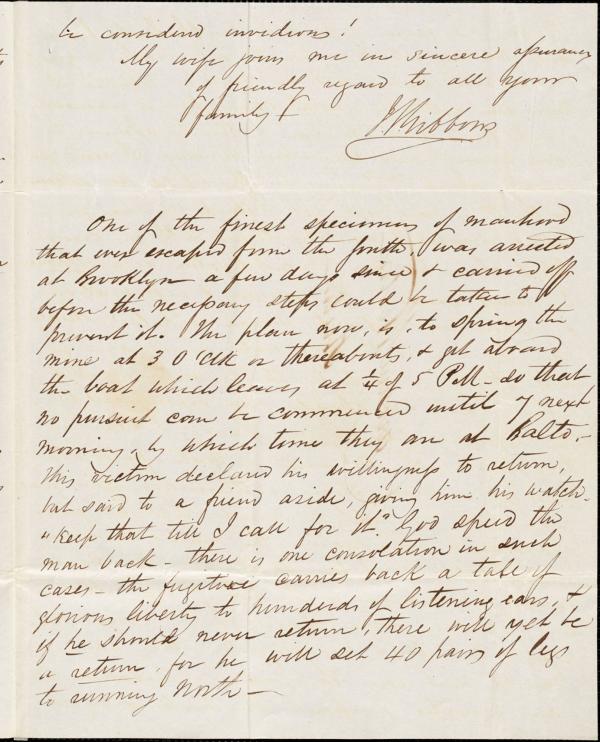 be considered invidious!
My wife joins me in sincere assurance
of friendly regard to all your
family &
J S Gibbons
One of the finest specimens of manhood
that ever escaped from the South, was arrested
at Brooklyn a few days since & carried off
before the necessary steps could be taken to
prevent it. The plan now, is, to spring the
mine at 3 O'Clk or thereabouts, & get aboard
the boat which leaves at ¼ of 5 P.M - so that
no pursuit can be commenced until 7 next
morning, by which time they are at Balto. -
This victim declared his willingness to return,
but said to a friend aside, giving him his watch -
"Keep that till I call for it." God speed the
man back - there is one consolation in such
cases - the fugitive carries back a tale of
glorious liberty to hundreds of listening ears, &
if he should never return, there will yet be
a return, for he will set 40 pairs of legs
to running North -